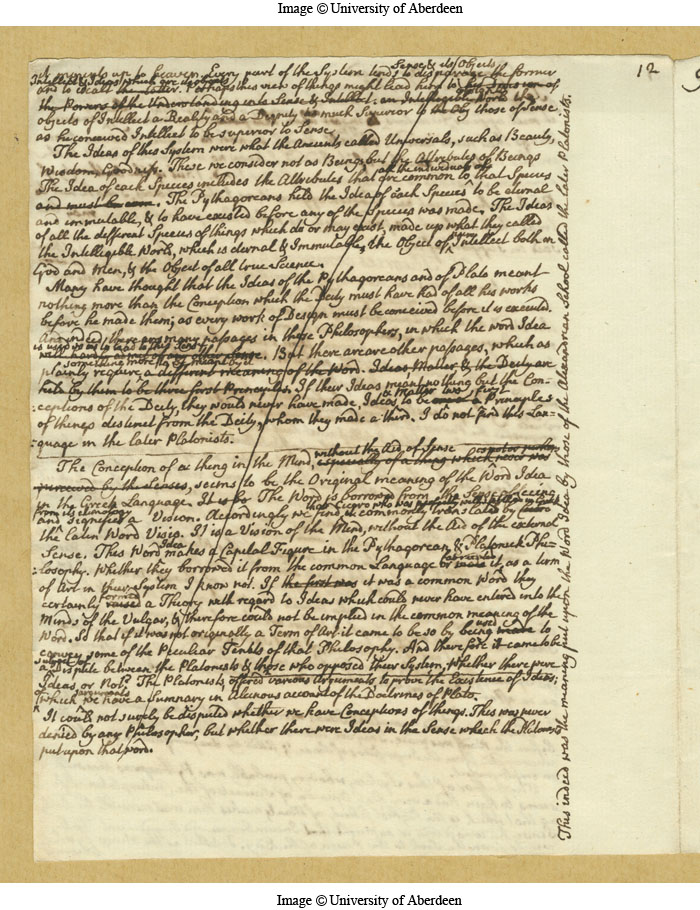 Image © University of Aberdeen
12
it mounts up to heaven. Every part of the System tends to disparage the former
Sense & its Objects
Intellect & Ideas which are its objects
and to exalt the latter. Perhaps this view of things might lead him to
the Powers of the Understanding into Sense & Intellect. an Intelligible World
objects of Intellect a Reality and a Dignity as much Superior to the by those of Sense
as he conceived Intellect to be superior to Sense
The Ideas of this System were what the Ancients called Universals, such as Beauty,
Wisdom, Goodness. These we consider not as Beings but the Attributes of Beings
all the individuals of
The Idea of each Species includes the Attributes that are common to that Species
and must become. The Pythagoreans held the Idea of each Species to be eternal
and immutable, & to have existed before any of the Species was made. The Ideas
of all the different Species of things which do or may exist, made up what they called
the Intelligible World, which is eternal & Immutable, the Object of Intellect both in
God and Men, & the Object of all true Science.
Many have thought that the Ideas of the Pythagoreans and of Plato meant
nothing more than the Conception which the Deity must have had of all his works
before he made them; as every work of Design must be conceived before it is executed.
And indeed there are many passages in these Philosophers, in which the word Idea
is used so as to lead to this Sense
But there are are other passages, which as
something more is meant by it
plainly require a different meaning of the Word. Ideas Matter & the Deity are
held by them to be three first Principles. If their Ideas meant nothing but the Con-
& Matter two first
:ceptions of the Deity, they would never have made, Ideas to be a Principles
of things destinct from the Deity, whom they made a third. I do not find this Lan-
:quage in the later Platonists.
The Conception of a thing in the Mind, without the Aid of Sense
especially of a thing which never was
perceived by the senses, seems to be the Original meaning of the Word Idea
in the Greek Language. It is so The Word is borrowed from the Sense of seeing
from its etimology
and signifies a Vision. Accordingly we find it commonly translated by Cicero
the Latin Word Visio. It is a Vision of the Mind, without the Aid of the external
Idea
Sense. This Word makes a Capital Figure in the Pythagorean & Platonick Phi-
:losophy. Whether they borrowed it from the common Language or made it, as a term
of Art in their System I know not. If the first was it was a common Word they
formed
certainly raised a Theory with regard to Ideas which could never have entered into the
Minds of the Vulgar, & therefore could not be implied in the common meaning of the
used
Word. So that if it was not originally a Term of Art it came to be so by being made to
convey some of the Peculiar Tenets of that Philosophy. And therefore it came to be
subject of
a Dispute between the Platonists & those who opposed their System, Whether there were
Ideas or Not. The Platonists offered various Arguments to prove the Existence of Ideas;
of which arguments
(which we have a Summary in Alcinous account of the Doctrines of Plato.
It could not surely be disputed whether we have Conceptions of things. This was never
denied by any Philosopher, but whether there were Ideas in the Sense which the Platonists
put upon that word.
This indeed was the meaning put upon the Word Idea by those of the Alexandrian School called the later Platonists.
Image © University of Aberdeen